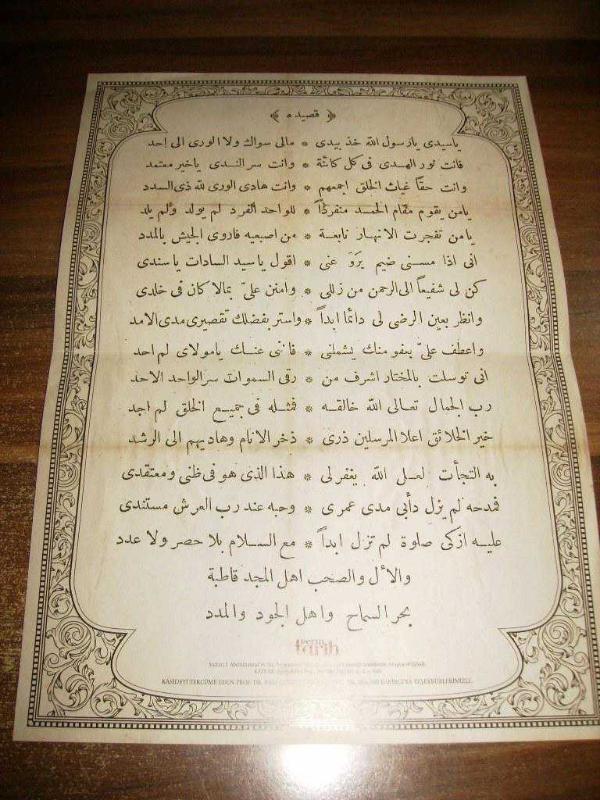 قصيده
ياسيدى يارسول الله خذ بيدى * مالى سواك ولا الوى الى احد
فانت نور الهدى فى كل كائنة * وانت سر الندى ياخير معتمد
وانت حقا غياث الخلق اجمعهم * وانت هادى الورى لله ذى السدد
يامن يقوم مقام الحمد منفردا * للواحد الفرد لم يولد ولم يلد
يامن تفجرت الانهار نابعة * من اصبعيه فاروى الجيش بالمدد
انى اذا مسنى ضيم يروّعنى * اقول ياسيد السادات ياسندى
كن لى شفيعاً الى الرحمن من زللى * وامنن علىّ بمالا كان فى خلدى
وانظر بعين الرضى لى دائماً ابداً * واستر بفضلك تقصيرى مدى الامد
واعطف علىّ بعفو منك يشملنى * فاننى عنك يامولاى لم احد
انى توسلت بالمختار اشرف من * رقى السموات سر الواحد الاحد
رب الجمال تعالى الله خالقه * فمثله فى جميع الخلق لم اجد
خير الخلائق اعلا المرسلين ذرى * ذخر الانام وهاديهم الى الرشد
به التجأت لعل الله يغفرلى * هذا الذى هو فى ظنى ومعتقدى
فمدحه لم يزل دأبى مدى عمرى * وحبه عند رب العرش مستندى
عليه ازكى صلوة لم تزل ابداً * مع السلام بلا حصر ولا عدد
والأل والصحب اهل المجد قاطبة
بحر السماح واهل الجود والمدد
tarih